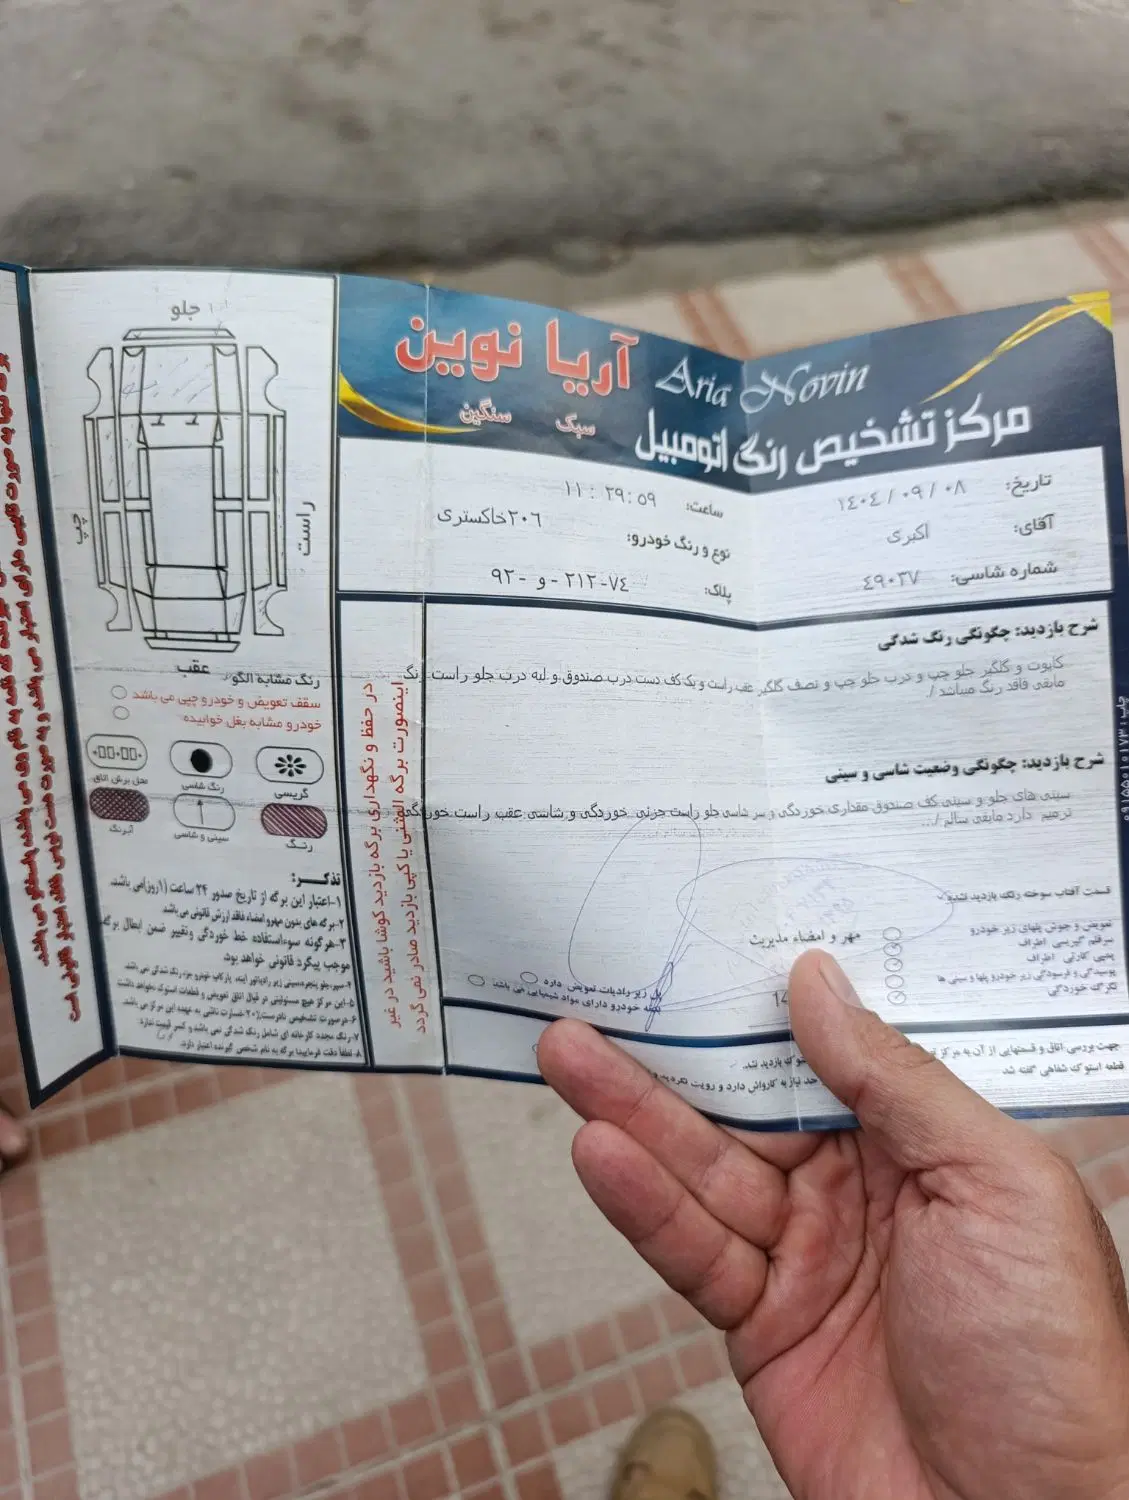 آریا نوین
Aria Novin
سبک
سنگین
مرکز تشخیص رنگ اتومبیل
تاریخ: ۱۴۰۴/۰۹/۰۸
ساعت: ۱۱:۲۹:۵۹
آقای: اکبری
نوع و رنگ خودرو: ۲۰۶خاکستری
شماره شاسی: ۴۹۰۳۷
پلاک: ۹۲- و -۲۱۲-۷۴
شرح بازدید: چگونگی رنگ شدگی
کاپوت و گلگیر جلو چپ و درب جلو چپ و نصف گلگیر عقب راست و یک کف دست درب صندوق و لبه درب جلو راست رنگ
مابقی فاقد رنگ میباشد/.
شرح بازدید: چگونگی وضعیت شاسی و سینی
سینی های جلو و سینی کف صندوق مقداری خوردگی و سر شاسی جلو راست جزئی خوردگی و شاسی عقب راست خوردگی
ترمیم دارد مابقی سالم/...
قسمت آفتاب سوخته رنگ بازدید نشده
تعویض و جوش پلهای زیر خودرو
سرقلم گیرسی اطراف
پوسیدگی و فرسودگی زیر خودرو پلها و سینی ها
تگرگ خوردگی
مهر و امضاء مدیریت
پل زیر رادیات تعویض دارد
بدنه خودرو دارای مواد شیمیایی می باشد
14
جهت بررسی اتاق و قسمتهایی از آن به مرکز
قطعه استوک شفاهی گفته شد
استوک بازدید نشد.
حد نیاز به کارواش دارد و رویت نگردید
در حفظ و نگهداری برگه بازدید کوشا باشید در غیر
اینصورت برگه المثنی یا کپی بازدید صادر نمی گردد
جلو
چپ
راست
عقب
رنگ مشابه الگو
سقف تعویض و خودرو چپی می باشد
خودرو مشابه بغل خوابیده
گریسی
رنگ شاسی
محل برش اتاق
رنگ
سینی و شاسی
آبرنگ
تذکر:
۱-اعتبار این برگه از تاریخ صدور ۲۴ ساعت (۱روز)می باشد.
۲-برگه های بدون مهر و امضاء فاقد ارزش قانونی می باشد.
۳-هرگونه سوءاستفاده خط خوردگی وتغییر ضمن ابطال برگه
موجب پیگرد قانونی خواهد بود.
۷-رنگ مجدد کارخانه ای شامل رنگ شدگی نمی باشد و کسر قیمت ندارد.
۸-لطفا دقت فرمایید! برگه به نام شخص گیرنده اعتبار دارد.